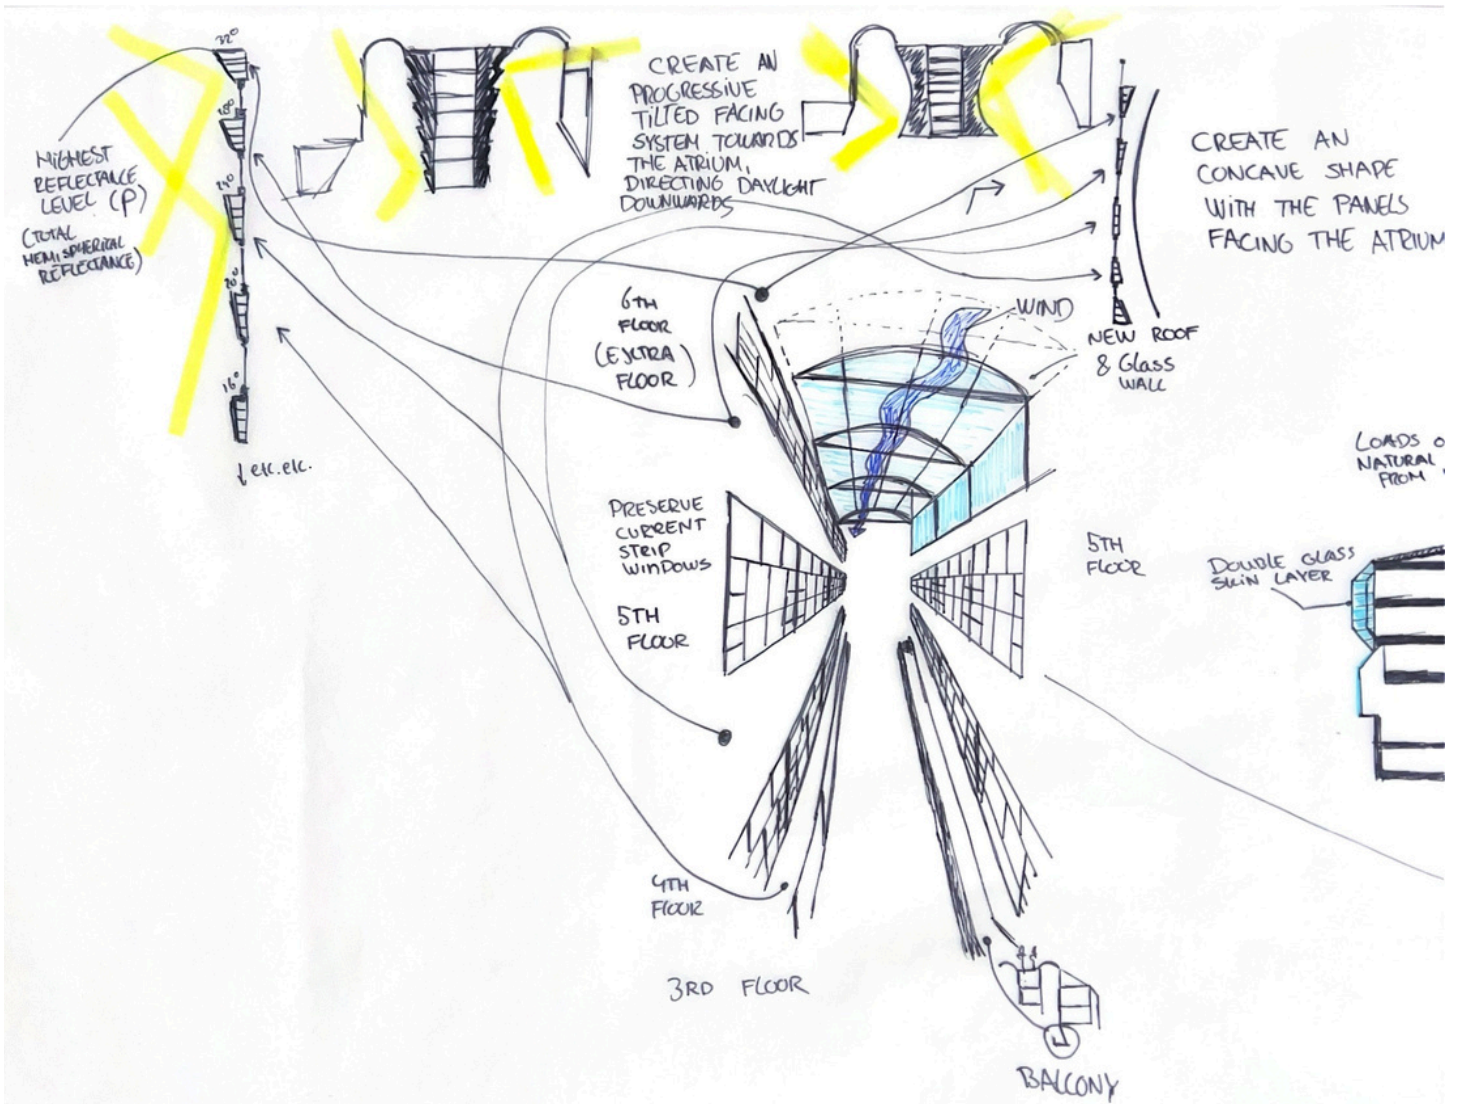 32°
28°
24°
20°
16°
↓ etc.etc.
HIGHEST
REFLECTANCE
LEVEL (P)
(TOTAL
HEMISPHERICAL
REFLECTANCE)
CREATE AN
PROGRESSIVE
TILTED FACING
SYSTEM TOWARDS
THE ATRIUM,
DIRECTING DAYLIGHT
DOWNWARDS
CREATE AN
CONCAVE SHAPE
WITH THE PANELS
FACING THE ATRIUM
6TH
FLOOR
(EXTRA
FLOOR)
WIND
NEW ROOF
& Glass
WALL
LOADS O
NATURAL
FROM
PRESERVE
CURRENT
STRIP
WINDOWS
5TH
FLOOR
5TH
FLOOR
DOUBLE GLASS
SKIN LAYER
4TH
FLOOR
3RD FLOOR
BALCONY